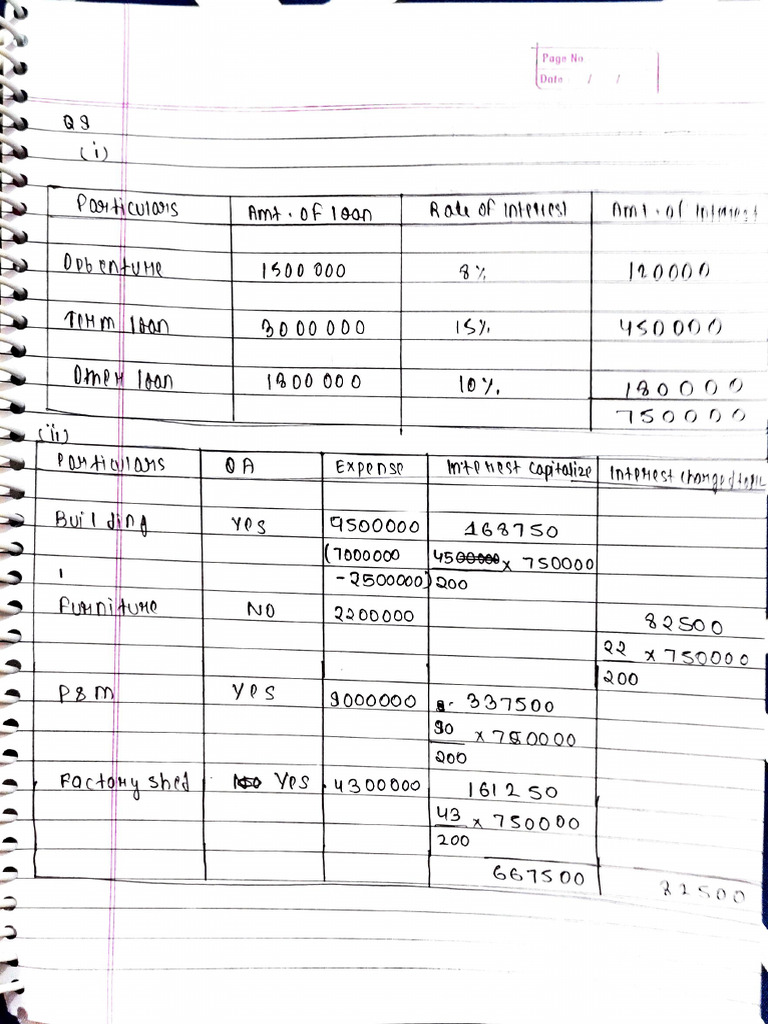 Page No
Date : / /
Q9
(i)
Particulars Amt. of loan Rate of interest Amt. of interest
Debenture 1500 000 8% 120000
Term loan 3000000 15% 450000
Other loan 1800 000 10% 180000
750000
(ii)
Particulars QA Expense Interest capitalize Interest charged to P/L
Building Yes 4500000 168750
(7000000 45 x 750000
-2500000) 200
Furniture NO 2200000 82500
22 x 750000
200
P&M Yes 9000000 337500
90 x 750000
200
Factory shed Yes 4300000 161250
43 x 750000
200
667500 82500